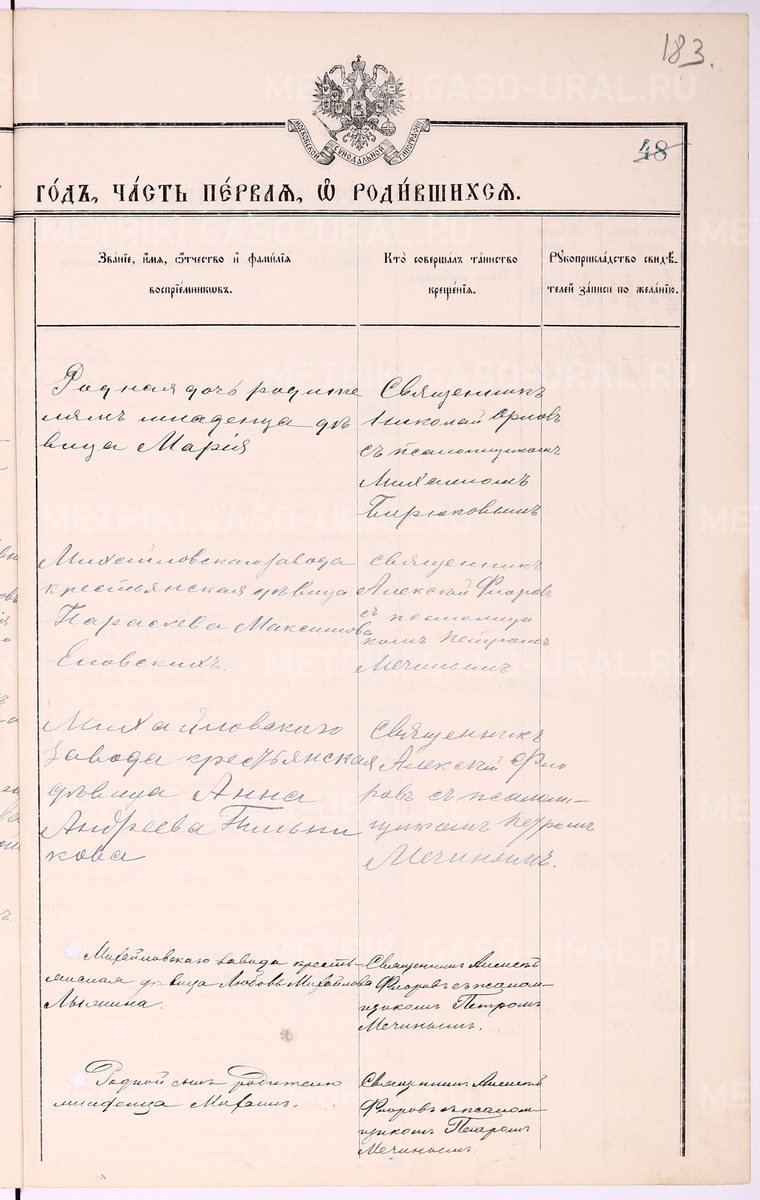 183.
МОСКОВСКОЙ СУНОДАЛЬНОЙ ТИПОГРАФІИ
48
ГО́ДЪ, ЧА́СТЬ ПЕ́РВАЯ, Ѡ҆ РОДИ́ВШИХСЯ.
Зва́нїе, и҆́мя, ѻ҆́тчество и҆ фами́лїя
воспрїе́мникѡвъ.
Кто̀ соверша́лъ та́инство
креще́нїя.
Рꙋкоприкла́дство свидѣ́-
телей за́писи по жела́нїю.
Родная дочь родите
лямъ младенца дѣ
вица Марія
Священникъ
Николай Орловъ
съ псаломщикомъ
Михаиломъ
Бирюковымъ
Михайловскаго завода
крестьянская дѣвица
Параскева Максимова
Еловскихъ.
Священникъ
Алексій Флоровъ
съ псаломщи
комъ Петромъ
Мечинымъ
Михайловскаго
завода крестьянская
дѣвица Анна
Андреева Пильни
кова
Священникъ
Алексій Фло
ровъ съ псалом-
щикомъ Петромъ
Мечинымъ.
Михайловскаго завода кресть-
янская дѣвица Любовь Михайлова
Священникъ Алексѣй
Флоровъ съ псалом-
щикомъ Петромъ
Мечинымъ.
Родной сынъ родителю
младенца Михаилъ.
Священникъ Алексѣй
Флоровъ съ псалом-
щикомъ Петромъ
Мечинымъ.
METRIKI.GASO-URAL.RU